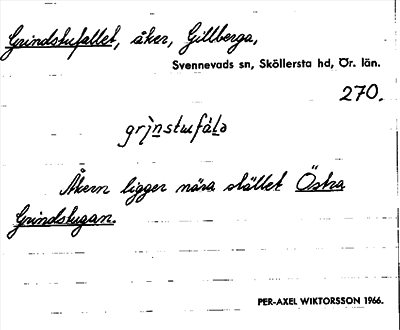 Grindstufallet, åker, Gillberga,
Svennevads sn, Sköllersta hd, Ör. län.
270.
Åkern ligger nära stället Östra
Grindstugan.
PER-AXEL WIKTORSSON 1966.